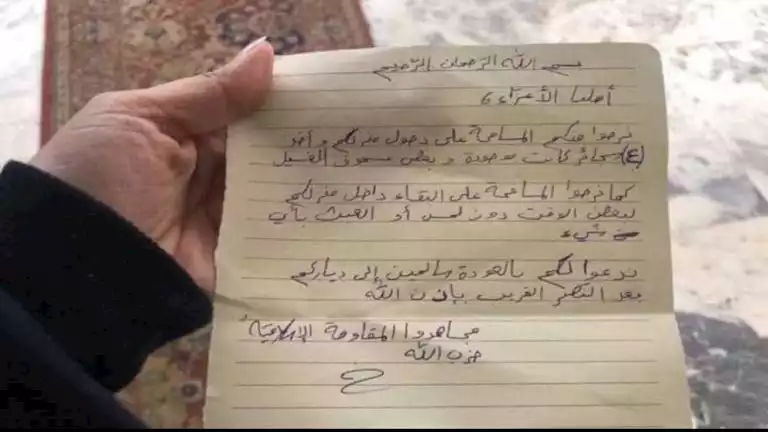 بسم الله الرحمان الرّحيم
أهلنا الأعزاء،
نرجوا منكم المسامحة على دخول منزلكم وأخذ
(٤) سجائر كانت موجودة وبعض مسحوق الغسيل
كما نرجوا المسامحة على البقاء داخل منزلكم
لبعض الوقت دون لمس أو العبث بأي
شيء
ندعوا لكم بالعودة سالمين إلى دياركم
بعد النصر القريب بإذن الله
مجاهدوا المقاومة الإسلاميّة
حزب الله